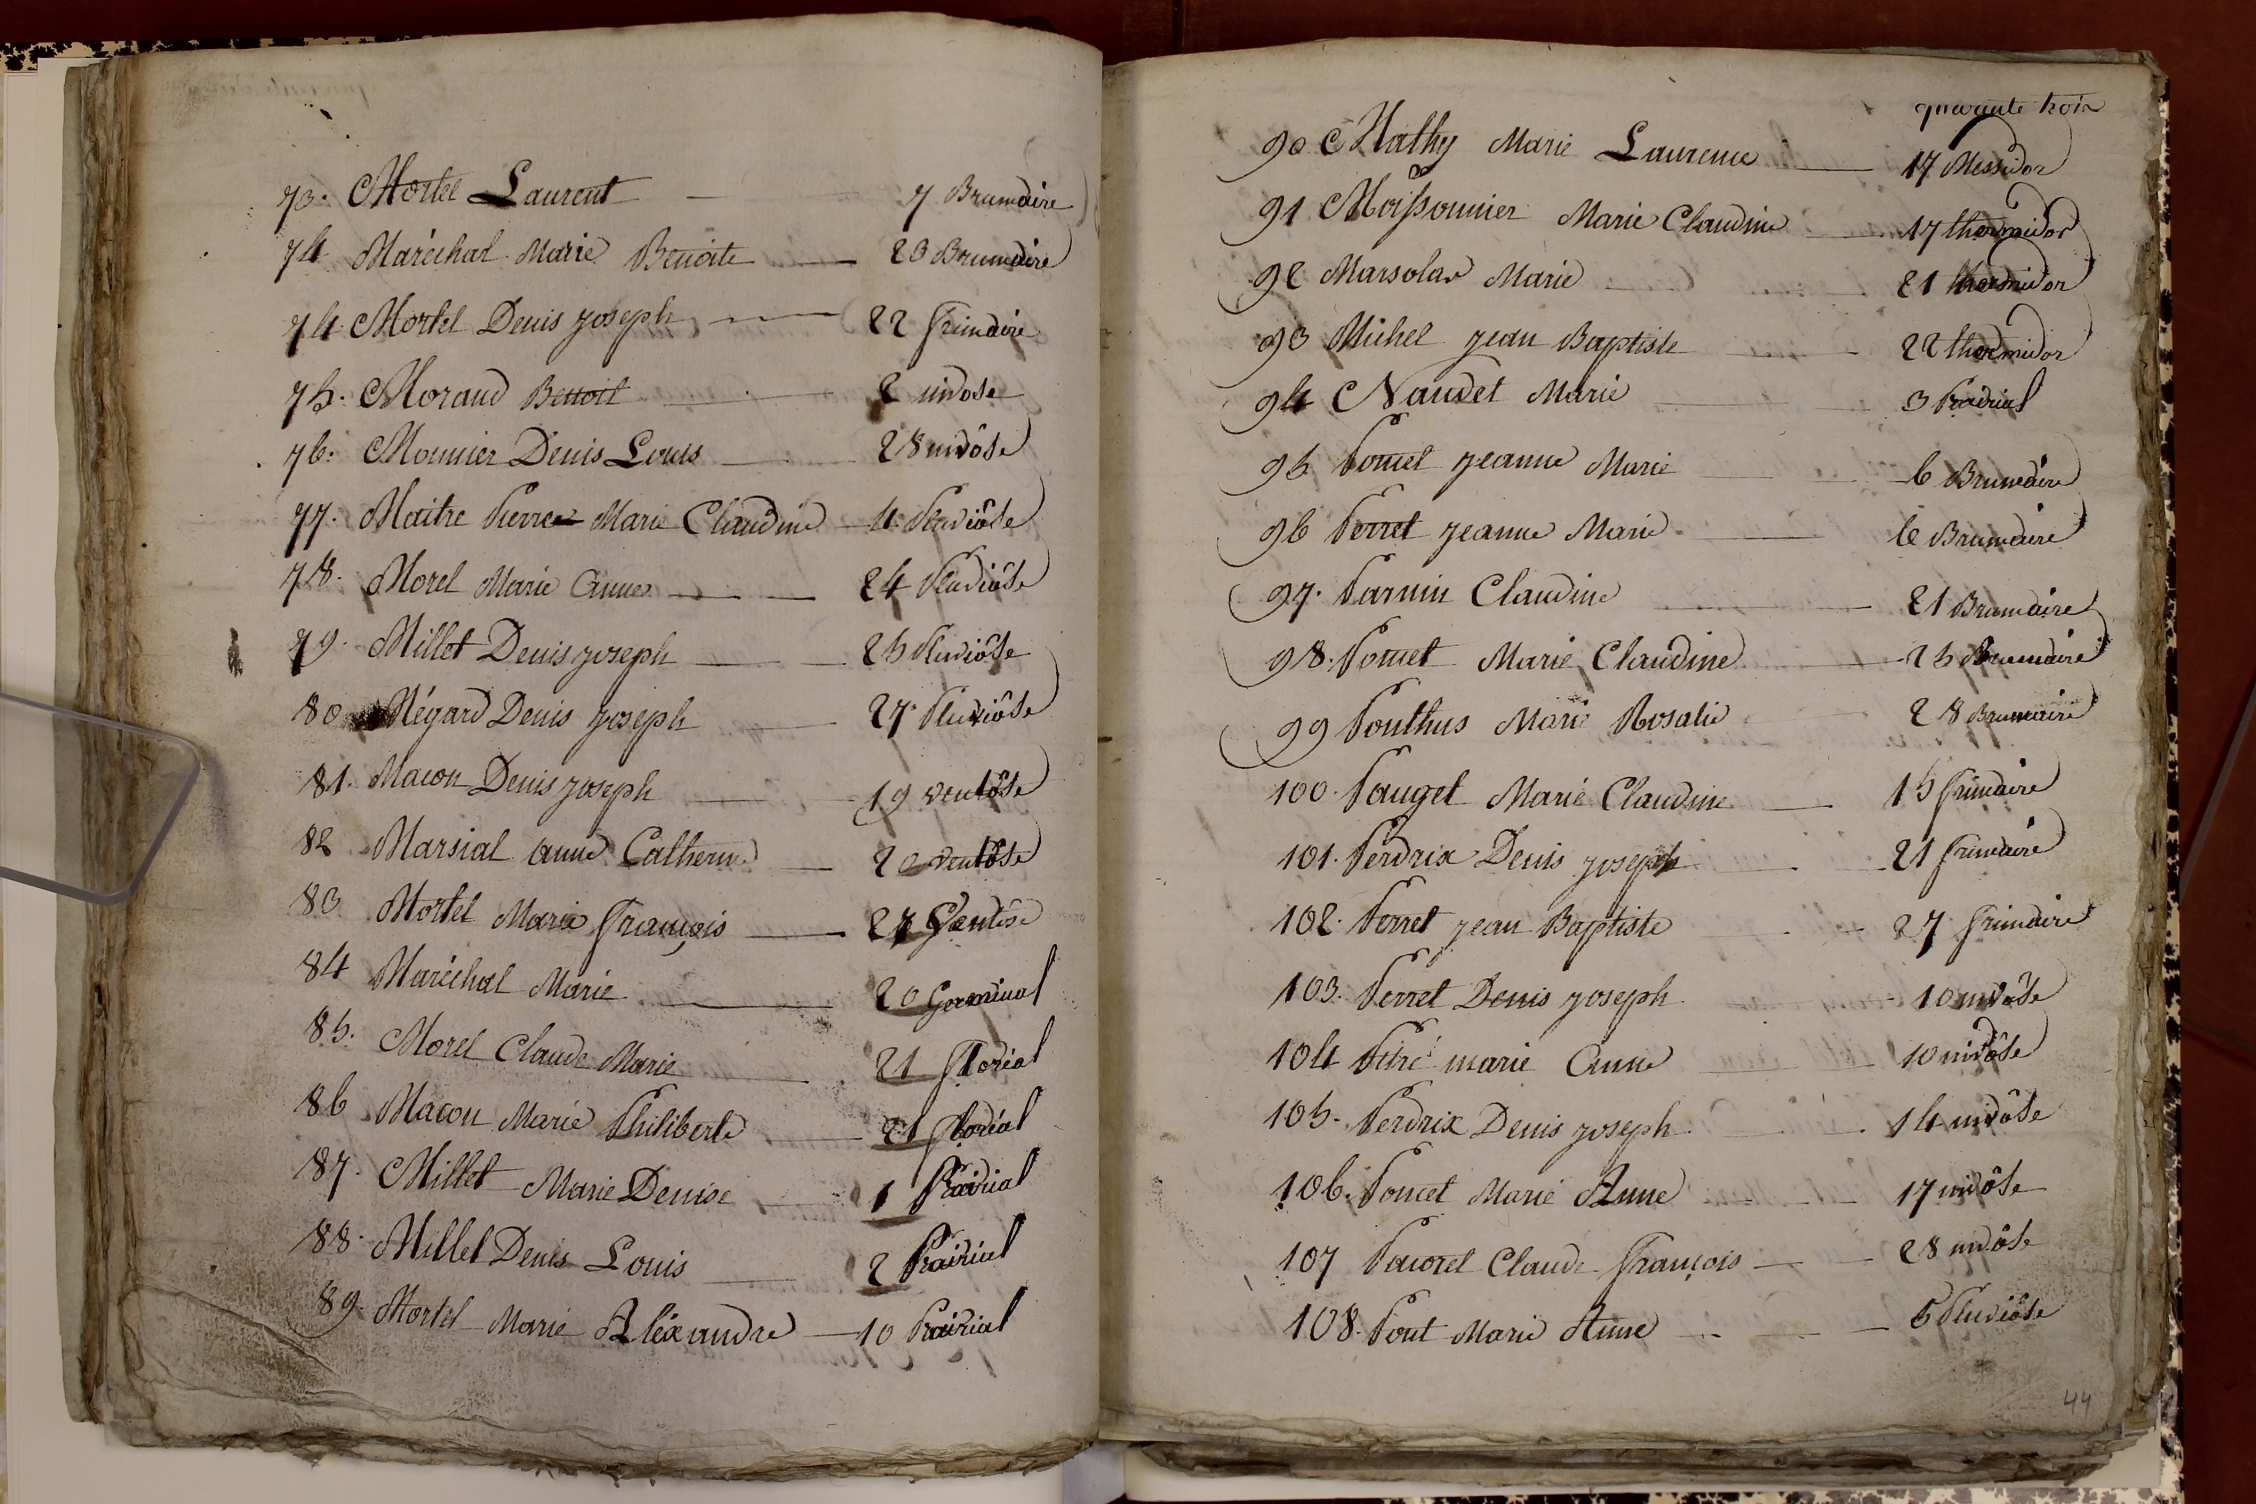 73. Mortel Laurent 7 Brumaire
74 Maréchal Marie Benoite 23 Brumaire
74. Mortel Denis Joseph 22 frimaire
75. Moraud Benoit 2 nivose
76. Mounier Denis Louis 28 nivôse
77. Maitre Pierre Marie Claudine 4 Pluviôse
78. Morel Marie Anne 24 Pluviôse
79. Millet Denis Joseph 25 Pluviôse
80 Mégard Denis Joseph 27 Pluviôse
81. Macon Denis Joseph 19 ventôse
82 Marsial Anne Catherine 20 ventôse
83 Mortel Marie François 27 Ventôse
84 Maréchal Marie 20 Germinal
85. Morel Claude Marie 21 floréal
86 Macon Marie Philiberte 21 floréal
87. Millet Marie Denise 1 Prairial
88. Millet Denis Louis 2 Prairial
89. Mortel Marie Aléxandre 10 Prairial
quarante trois
90 Mathy Marie Laurence 17 Messidor
91 Moissonnier Marie Claudine 17 thermidor
92 Marsolas Marie 21 thermidor
93 Michel Jean Baptiste 22 thermidor
94 Naudet Marie 3 Prairial
95 Poncet Jeanne Marie 6 Brumaire
96 Perret Jeanne Marie Brumaire
97. Parnin Claudine 21 Brumaire
98. Poncet Marie Claudine 25 Brumaire
99 Ponthus Marie Rosalie 28 Brumaire
100. Pauget Marie Claudine 15 frimaire
101. Perdrix Denis Joseph 21 frimaire
102. Perret Jean Baptiste 27 frimaire
103. Perret Denis Joseph 10 nivôse
104 Pitré marie Anne 10 nivôse
105. Perdrix Denis Joseph 14 nivôse
106. Poncet Marie Anne 17 nivôse
107 Pacorel Claude François 28 nivôse
108. Pont Marie Anne 5 Pluviôse
44